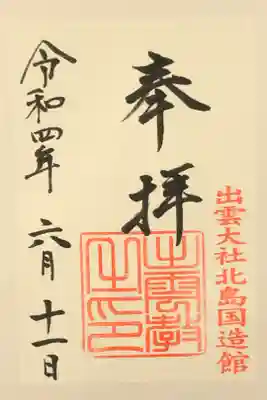 出雲大社北島国造館
奉拝
出雲教之印
令和四年 六月 十一日